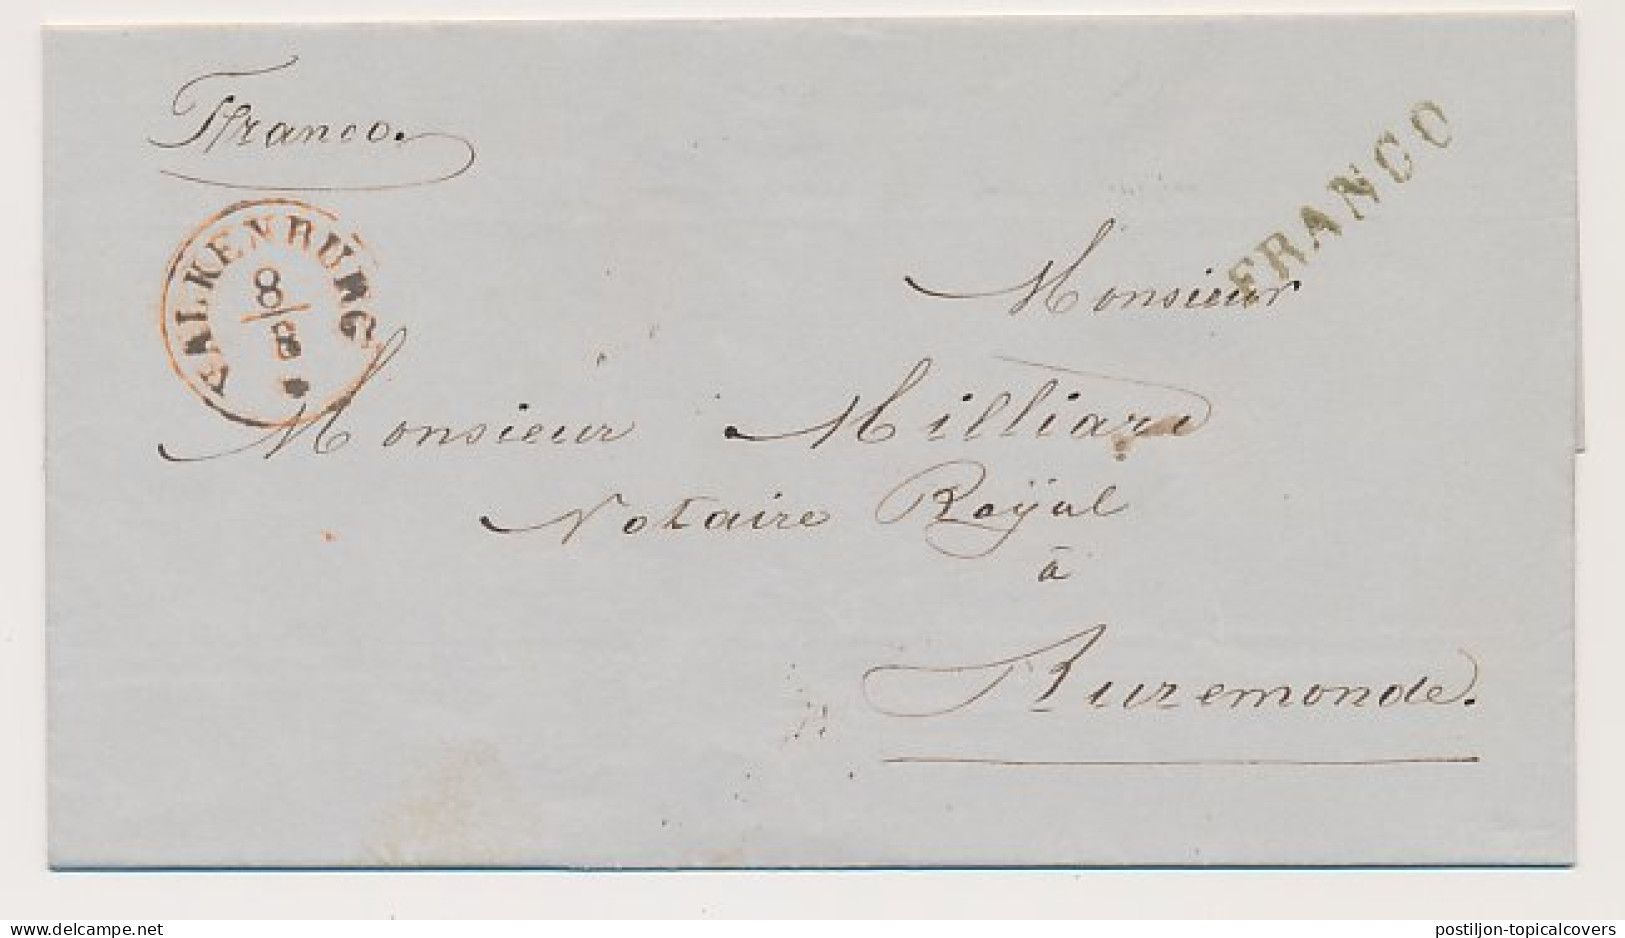 Ffranco.
FRANCO
VALKENBURG
8
8
Monsieur
Monsieur Milliard
Notaire Royal
à
Ruremonde.
delcampe.net
postiljon-topicalcovers